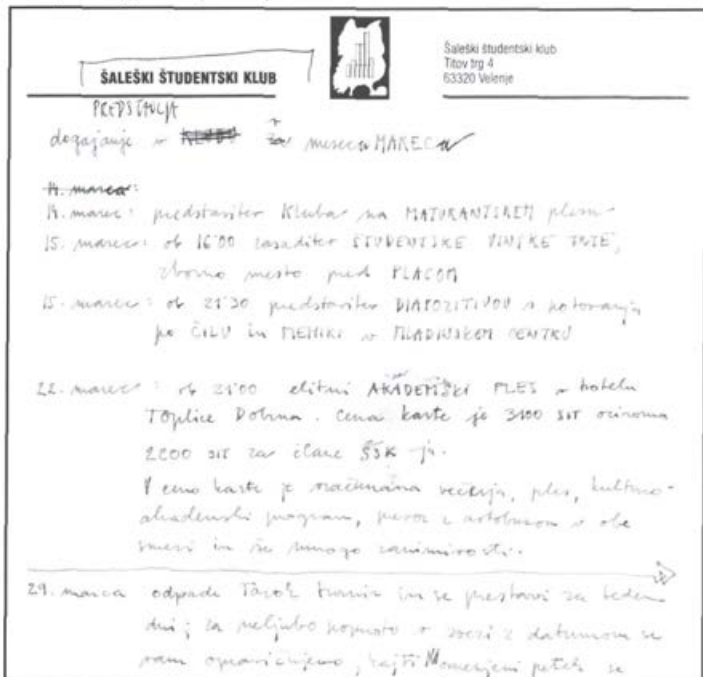 ŠALEŠKI ŠTUDENTSKI KLUB
Šaleški študentski klub
Titov trg 4
63320 Velenje
PREDSTAVLJA
dogajanje v KLUBU za mesec MAREC
14. marca:
14. marec: predstavitev Kluba na MATURANTSKEM plesu
15. marec: ob 16:00 zasaditev ŠTUDENTSKE VINSKE TRTE,
zborno mesto pred PLACOM
15. marec: ob 21:30 predstavitev DIAPOZITIVOV s potovanja
po ČILU in MEHIKI v MLADINSKEM CENTRU
22. marec: ob 21:00 elitni AKADEMSKI PLES v hotelu
TOplice Dobrna. Cena karte je 3100 SIT oziroma
2000 SIT za člane ŠŠK-ja.
V ceno karte je vračunana večerja, ples, kulturno-
akademski program, prevoz z avtobusom v obe
smeri in še mnogo zanimivosti.
29. marca odpade Tarok turnir in se prestavi za teden
dni; za neljubo pomoto v zvezi z datumom se
vam opravičujemo, kajti omenjeni petek se